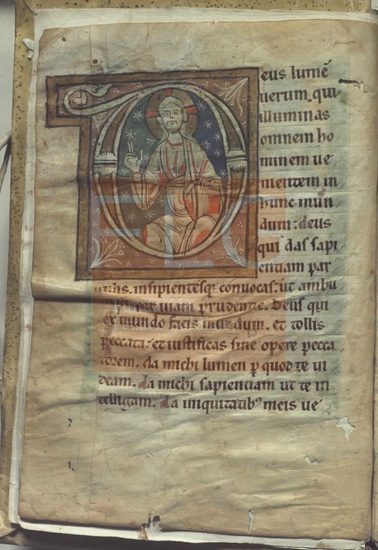 eus lumē
uerum, qui
illuminas
omnem ho
minem ue
nientem in
hunc mun
dum: deus
qui das sapi
entiam par
uulis, insipientesq; conuocas. ut ambu
uiam prudentie. Deus qui
ex mundo facis mundum. et tollis
peccata: et iustificas sine opere pecca
torem. da michi lumen ꝑ quod te ui
deam. da michi sapientiam ut te in
telligam. da iniquitatibꝰ meis ue